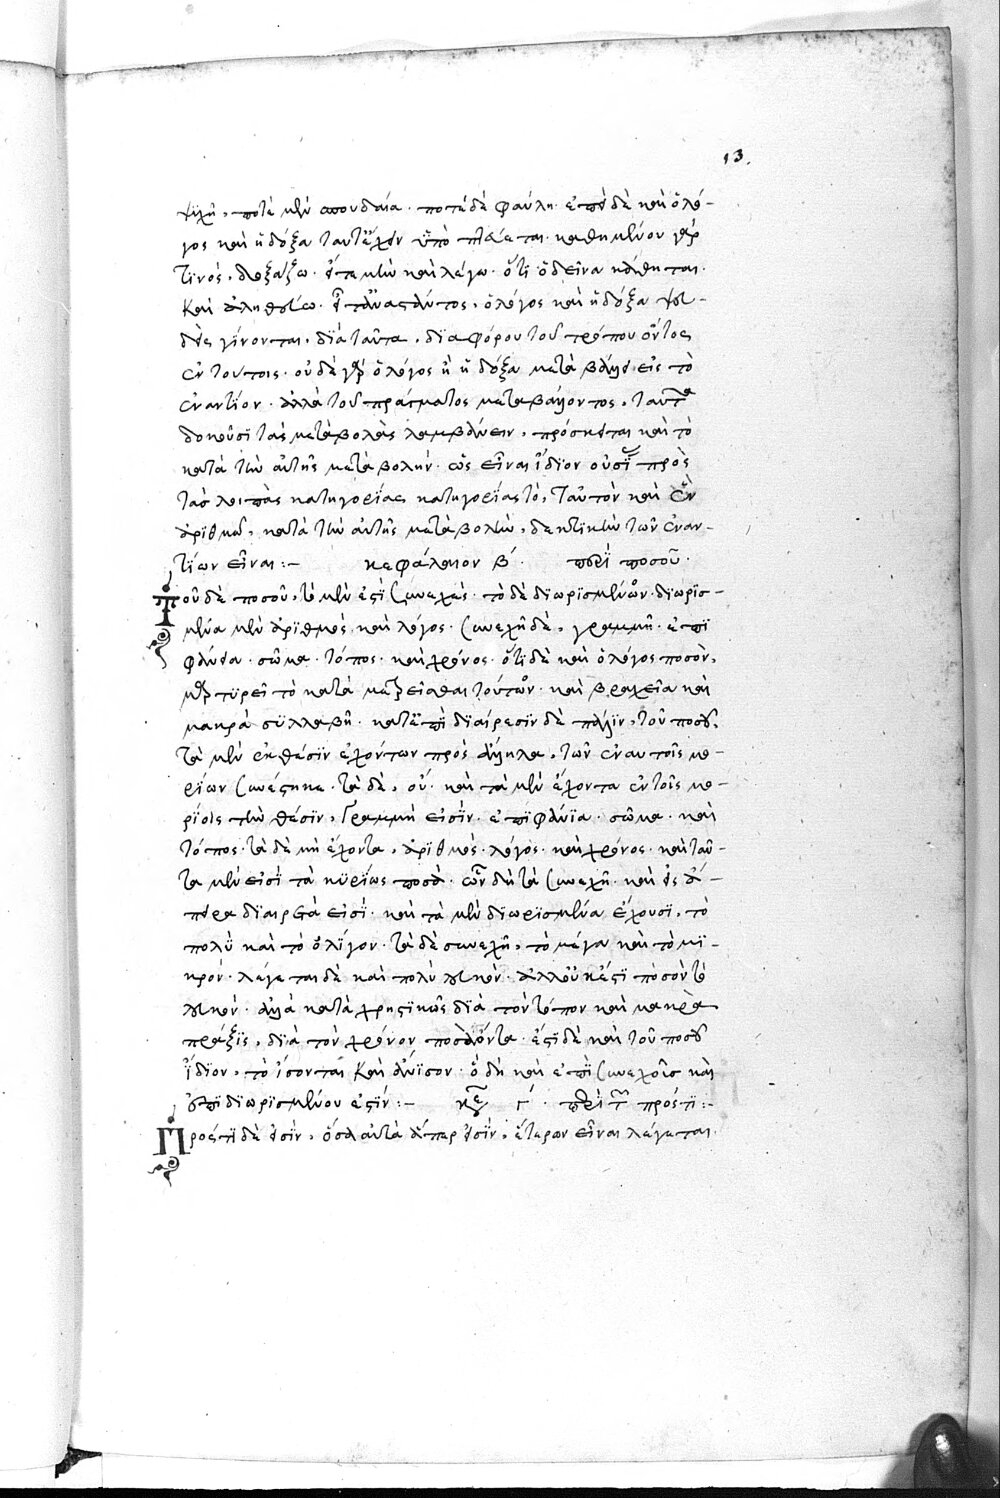 13.
ψυχὴ, ποτὲ μὲν σπουδαία · ποτὲ δὲ φαύλη · ἐπεὶ δὲ καὶ ὁ λό-
γος καὶ ἡ δόξα ταυτ ἔχειν ὑπὸ πτ · καθημένου γάρ
τινὸς, δοξάζω · εἶτα μὲν καὶ λέγω · ὅτι ὁ δεῖνα κάθηται ·
καὶ ἀληθεύω · ἀναστάντος, ὁ λόγος καὶ ἡ δόξα ψευ-
δεῖς γίνονται, διὰ ταῦτα, διαφόρου τοῦ τρόπου ὄντος
ἐν τούτοις · οὐδὲ γὰρ ὁ λόγος ἢ ἡ δόξα μεταβάλλει εἰς τὸ
ἐναντίον · ἀλλὰ τοῦ πράγματος μεταβάλλοντος, ταῦτα
δοκοῦσι τὰς μεταβολὰς λαμβάνειν, πρόσκειται καὶ τὸ
κατὰ τὴν αὐτῆς μεταβολήν · ὡς εἶναι ἴδιον οὐσίας πρὸς
τὰς λοιπὰς κατηγορίας κατηγορίας τὸ, ταυτὸν καὶ ἓν
ἀριθμῷ, κατὰ τὴν αὐτῆς μεταβολὴν, δεκτικὴν τῶν ἐναν-
τίων εἶναι :- κεφάλαιον β΄ · περὶ ποσοῦ ·
Τοῦ δὲ ποσοῦ, τὸ μὲν ἐστὶ συνεχές · τὸ δὲ διωρισμένον · διωρισ-
μένα μὲν ἀριθμὸς καὶ λόγος · συνεχῆ δὲ, γραμμὴ · ἐπι
φάνεια · σῶμα · τόπος · καὶ χρόνος · ὅτι δὲ καὶ ὁ λόγος ποσὸν,
μαρτυρεῖ τὸ καταμετρεῖσθαι τοῦτον · καὶ βραχεῖα καὶ
μακρὰ συλλαβὴ · κατὰ διαίρεσιν δὲ πάλιν, τοῦ ποσοῦ,
τὰ μὲν ἐκ θέσιν ἐχόντων πρὸς ἄλληλα, τῶν ἐν αυτοῖς μο-
ρίων συνέστηκε · τὰ δὲ, οὔ · καὶ τὰ μὲν ἔχοντα ἐν τοῖς μο-
ρίοις τὴν θέσιν, γραμμὴ εἰσὶν · ἐπιφάνεια · σῶμα · καὶ
τόπος · τὰ δὲ μὴ ἔχοντα, ἀριθμὸς · λόγος · καὶ χρόνος · καὶ ταῦ-
τα μὲν εἰσὶ τὰ κυρίως ποσὰ · ὧν δὴ τὰ συνεχῆ · καὶ εἰς ἄ-
πειρα διαιρετά εἰσί · καὶ τὰ μὲν διωρισμένα ἔχουσι, τὸ
πολὺ καὶ τὸ ὀλίγον · τὰ δὲ συνεχῆ, τὸ μέγα καὶ τὸ μι-
κρόν · λέγεται δὲ καὶ πολὺ λευκόν · ἀλλ' οὐκ ἐστὶ ποσὸν τὸ
λευκόν · ἀλλὰ καταχρηστικῶς διὰ τὸν τόπον καὶ μακρα
πρᾶξις, διὰ τὸν χρόνον ποσὸν ὄντα · ἐστὶ δὲ καὶ τοῦ ποσοῦ
ἴδιον, τὸ ἴσον τὲ καὶ ἄνισον · ὃ δὴ καὶ ἐπὶ συνεχοῦς καὶ
ἐπὶ διωρισμένου ἐστίν :- κεφ γ΄ · περὶ τῶν πρός τι :-
Πρός τι δὲ εἰσὶν, ὅσα αὐτὰ ἅπερ εἰσὶν, ἑτέρων εἶναι λέγεται ·